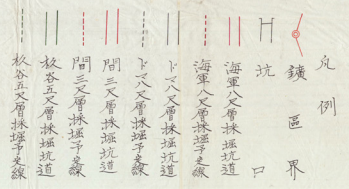 凡例
鑛區界
坑口
海軍八尺層採堀坑道
海軍八尺層採堀予定線
ドマ八尺層採堀坑道
ドマ八尺層採堀予定線
間三尺層採堀坑道
間三尺層採堀予定線
杦谷五尺層採堀坑道
杦谷五尺層採堀予定線